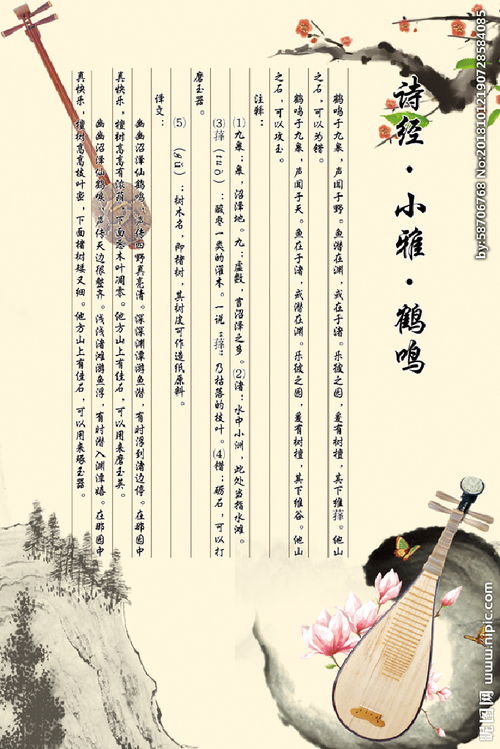 诗经·小雅·鹤鸣
鹤鸣于九皋，声闻于野。鱼潜在渊，或在于渚。乐彼之园，爰有树檀，其下维萚。他山
之石，可以为错。
鹤鸣于九皋，声闻于天。鱼在于渚，或潜在渊。乐彼之园，爰有树檀，其下维谷。他山
之石，可以攻玉。
注释：
⑴九皋：皋，沼泽地。九：虚数，言沼泽之多。⑵渚：水中小洲，此处当指水滩。
⑶萚（tuò）：酸枣一类的灌木。一说“萚”乃枯落的枝叶。⑷错：砺石，可以打
磨玉器。
⑸（gǔ）：树木名，即楮树，其树皮可作造纸原料。
译文：
幽幽沼泽仙鹤鸣，声传四野真亮清。深深渊潭游鱼潜，有时浮到渚边停。在那园中
真快乐，檀树高高有浓荫，下面落木叶凋零。他方山上有佳石，可以用来磨玉英。
幽幽沼泽仙鹤唳，声传天边很整齐。浅浅渚滩游鱼浮，有时潜入渊潭嬉。在那园中
真快乐，檀树高高枝叶密，下面楮树矮又细。他方山上有佳石，可以用来琢玉器。
by:58706768 No:20181012190728584085
昵图网 www.nipic.com